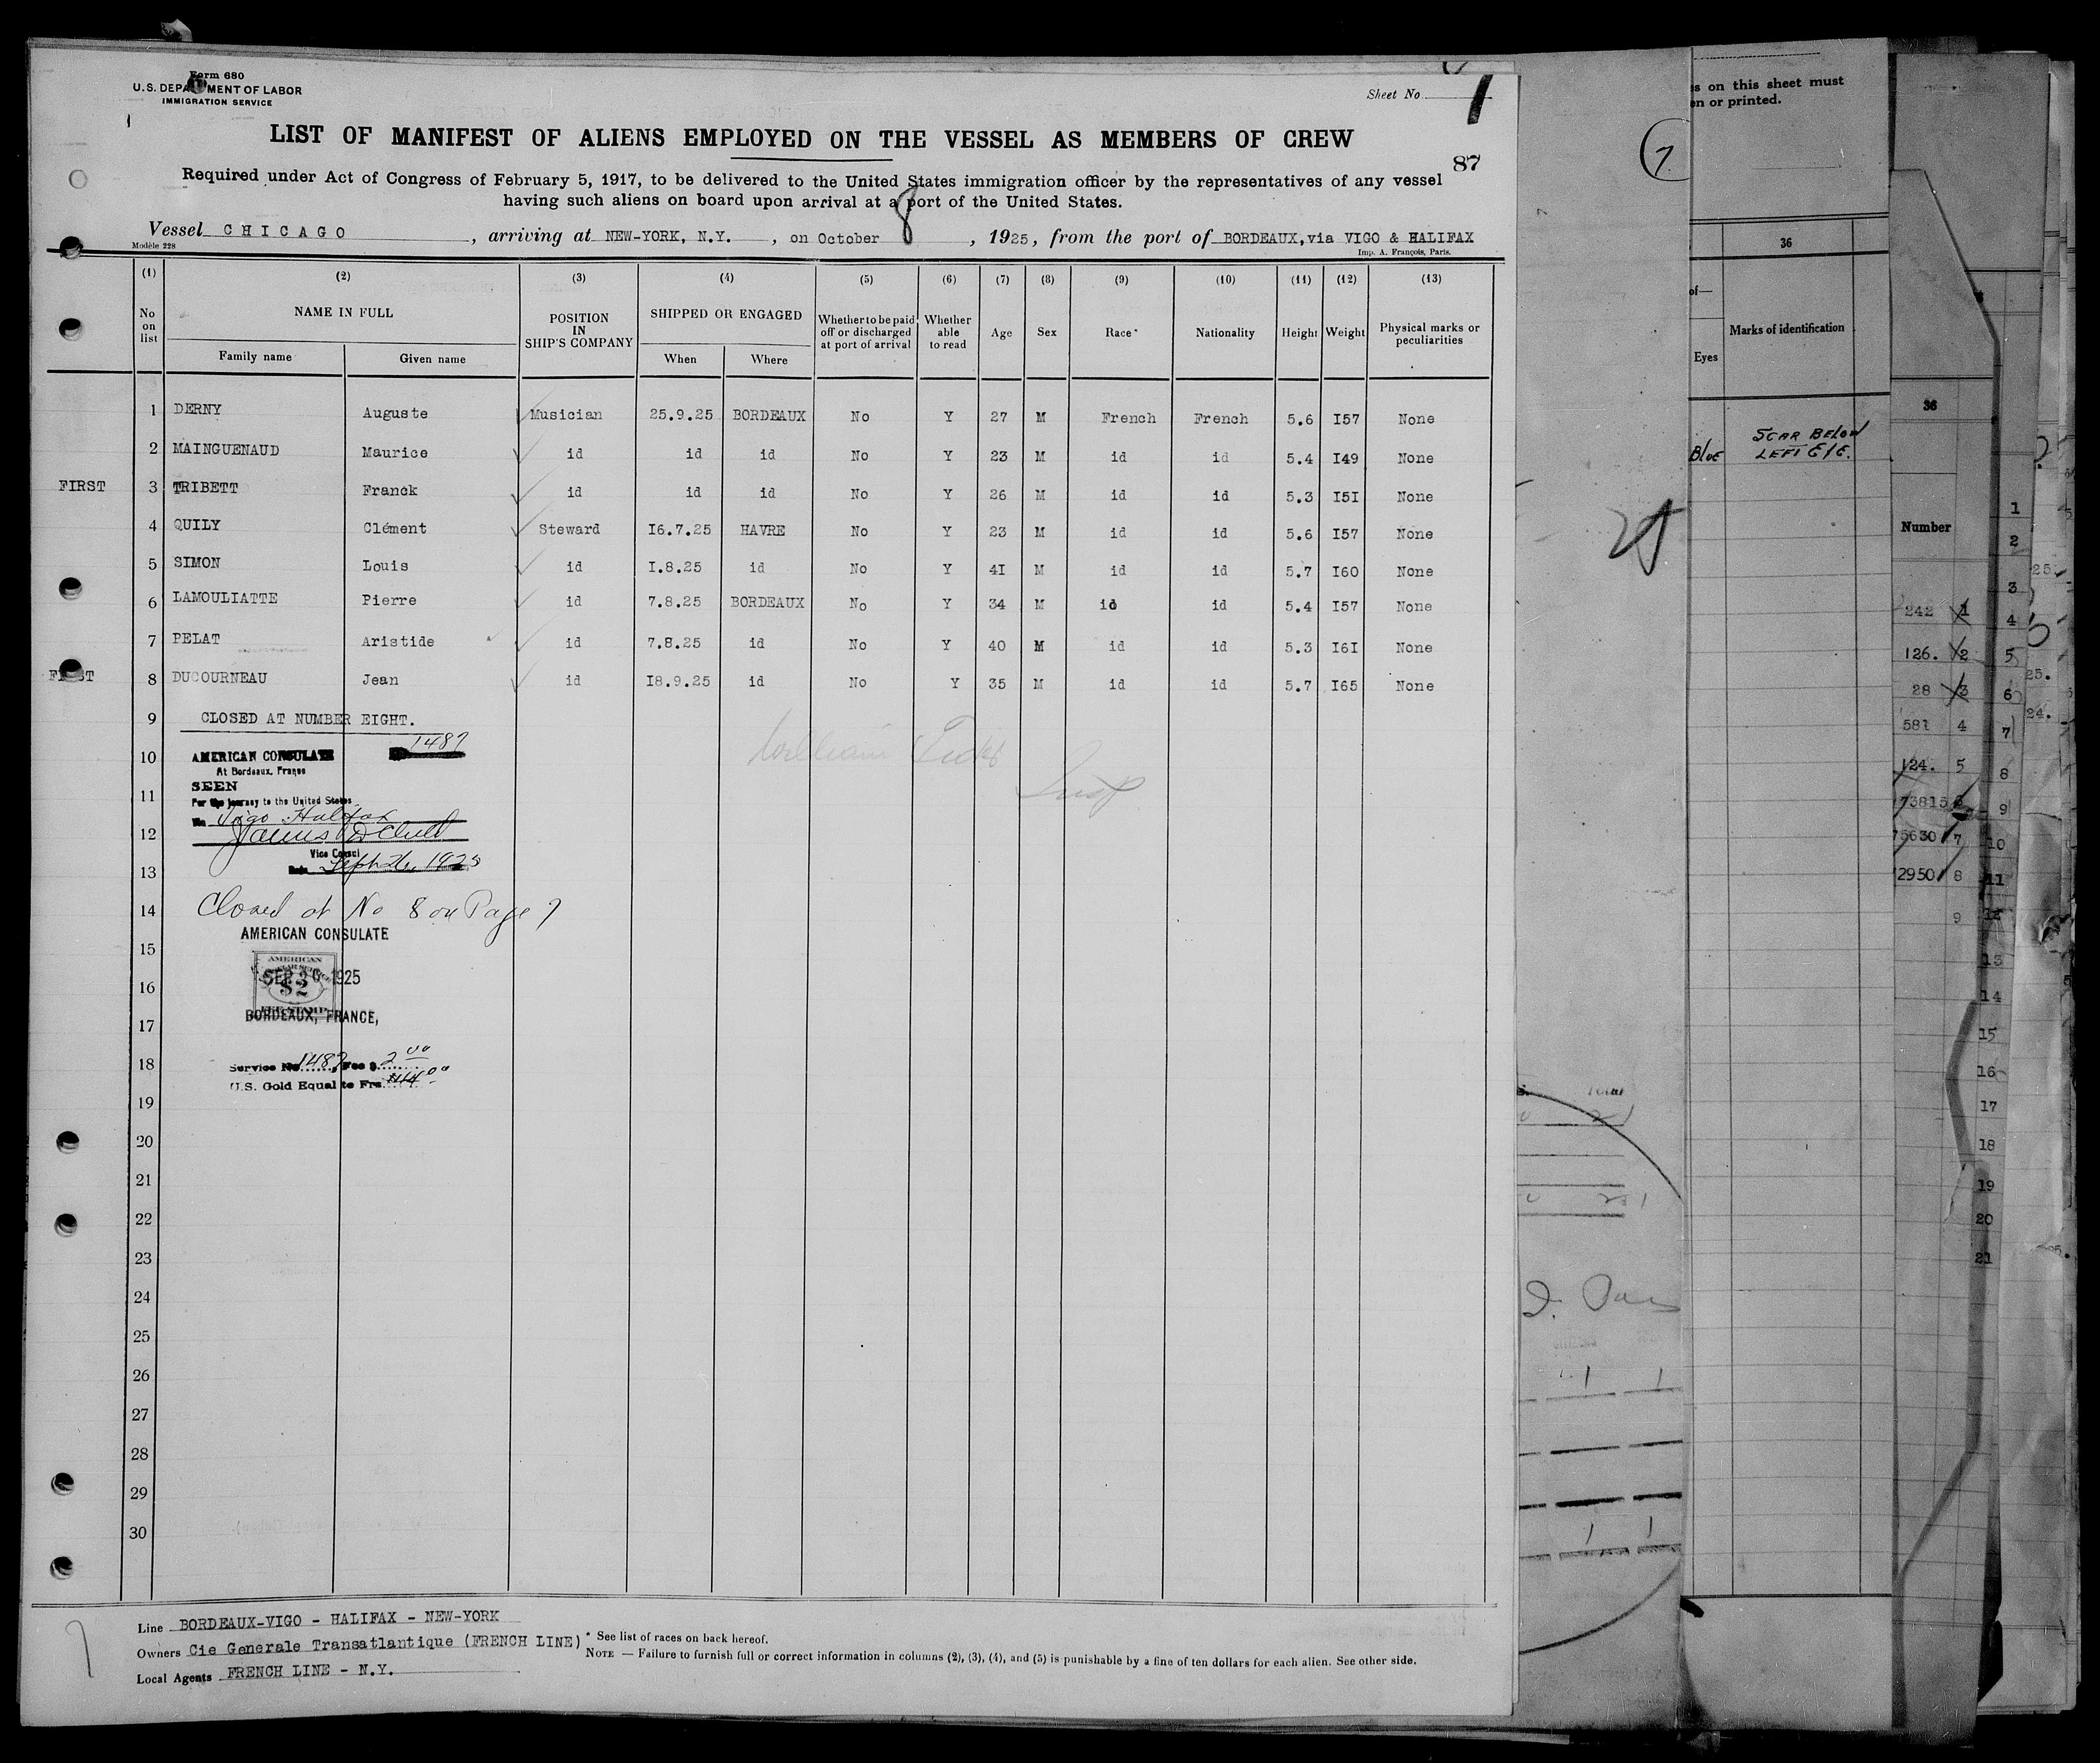 Form 680
U.S. DEPARTMENT OF LABOR
IMMIGRATION SERVICE
Sheet No.
87
LIST OF MANIFEST OF ALIENS EMPLOYED ON THE VESSEL AS MEMBERS OF CREW
Required under Act of Congress of February 5, 1917, to be delivered to the United States immigration officer by the representatives of any vessel
having such aliens on board upon arrival at a port of the United States.
Vessel CHICAGO, arriving at NEW-YORK, N.Y., on October 8, 1925, from the port of BORDEAUX, via VIGO & HALIFAX
Modèle 228
Imp. A. François, Paris.
(1) (2) (3) (4) (5) (6) (7) (8) (9) (10) (11) (12) (13)
No on list NAME IN FULL POSITION IN SHIP'S COMPANY SHIPPED OR ENGAGED Whether to be paid off or discharged at port of arrival Whether able to read Age Sex Race* Nationality Height Weight Physical marks or peculiarities
Family name Given name When Where
1 DERNY Auguste Musician 25.9.25 BORDEAUX No Y 27 M French French 5.6 I57 None
2 MAINGUENAUD Maurice id id id No Y 23 M id id 5.4 I49 None
FIRST 3 TRIBETT Franck id id id No Y 26 M id id 5.3 I5I None
4 QUILY Clément Steward I6.7.25 HAVRE No Y 23 M id id 5.6 I57 None
5 SIMON Louis id I.8.25 id No Y 4I M id id 5.7 I60 None
6 LAMOULIATTE Pierre id 7.8.25 BORDEAUX No Y 34 M id id 5.4 I57 None
7 PELAT Aristide id 7.8.25 id No Y 40 M id id 5.3 I6I None
FIRST 8 DUCOURNEAU Jean id I8.9.25 id No Y 35 M id id 5.7 I65 None
9 CLOSED AT NUMBER EIGHT.
10 AMERICAN CONSULATE 1487
At Bordeaux, France
11 SEEN
For the journey to the United States
Via Vigo Halifax
12
Vice Consul
Date Sept 26, 1925
13
14 Closed at No 8 on Page 7
AMERICAN CONSULATE
15
AMERICAN
SEP 26 1925
16 $2
FEE STAMP
BORDEAUX, FRANCE,
17
18 Service No 1487 Fee $ 2 00
U.S. Gold Equal to Frs.
19
20
21
22
23
24
25
26
27
28
29
30
Line BORDEAUX-VIGO - HALIFAX - NEW-YORK
Owners Cie Generale Transatlantique (FRENCH LINE)
Local Agents FRENCH LINE - N.Y.
* See list of races on back hereof.
NOTE — Failure to furnish full or correct information in columns (2), (3), (4), and (5) is punishable by a fine of ten dollars for each alien. See other side.
s on this sheet must
en or printed.
7
36
of—
Eyes Marks of identification
Blue SCAR BELOW
LEFT EYE.
Total
36
Number
242 1
126. 2
28 3
581 4
124. 5
73815
75630 7
2950 8
9
1
2
3
4
5
6
7
8
9
10
11
12
13
14
15
16
17
18
19
20
21